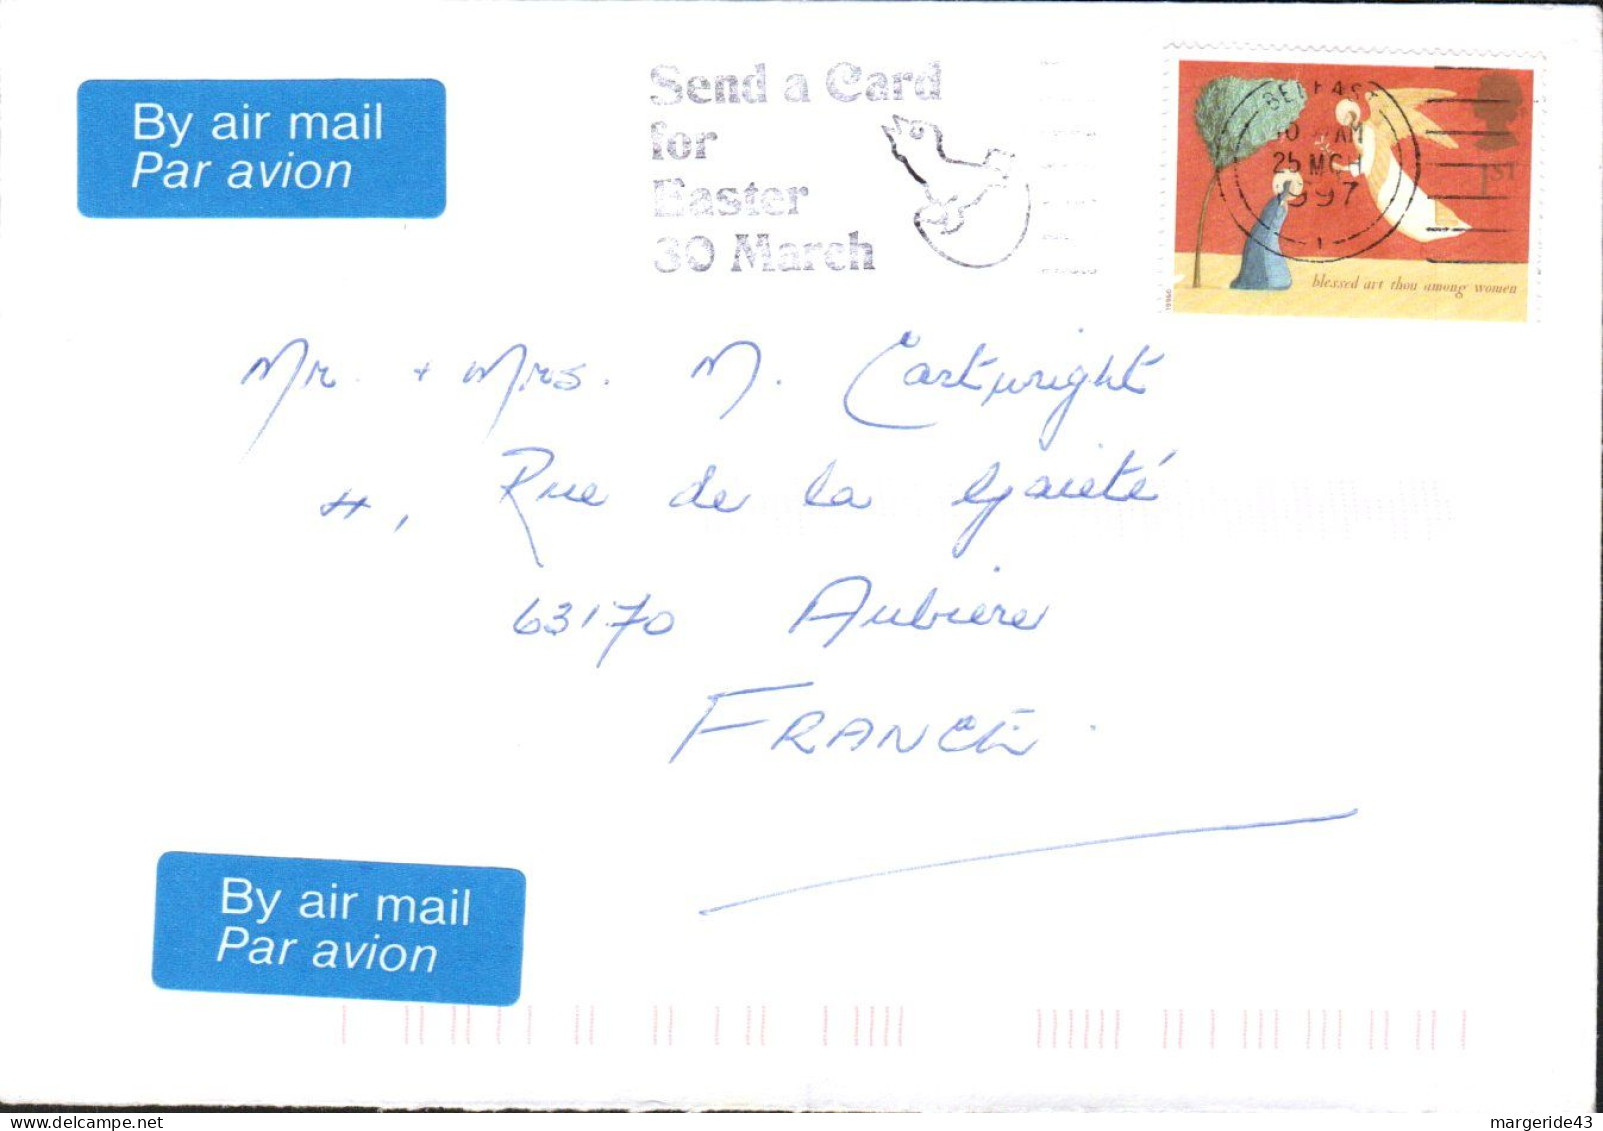 By air mail
Par avion
Send a Card
for
Easter
30 March
BELFAST
10 AM
25 MCH
1997
1
1ST
blessed art thou among women
1996
Mr. + Mrs. M. Cartwright
4, Rue de la Gaieté
63170 Aubiere
FRANCE.
By air mail
Par avion
margeride43